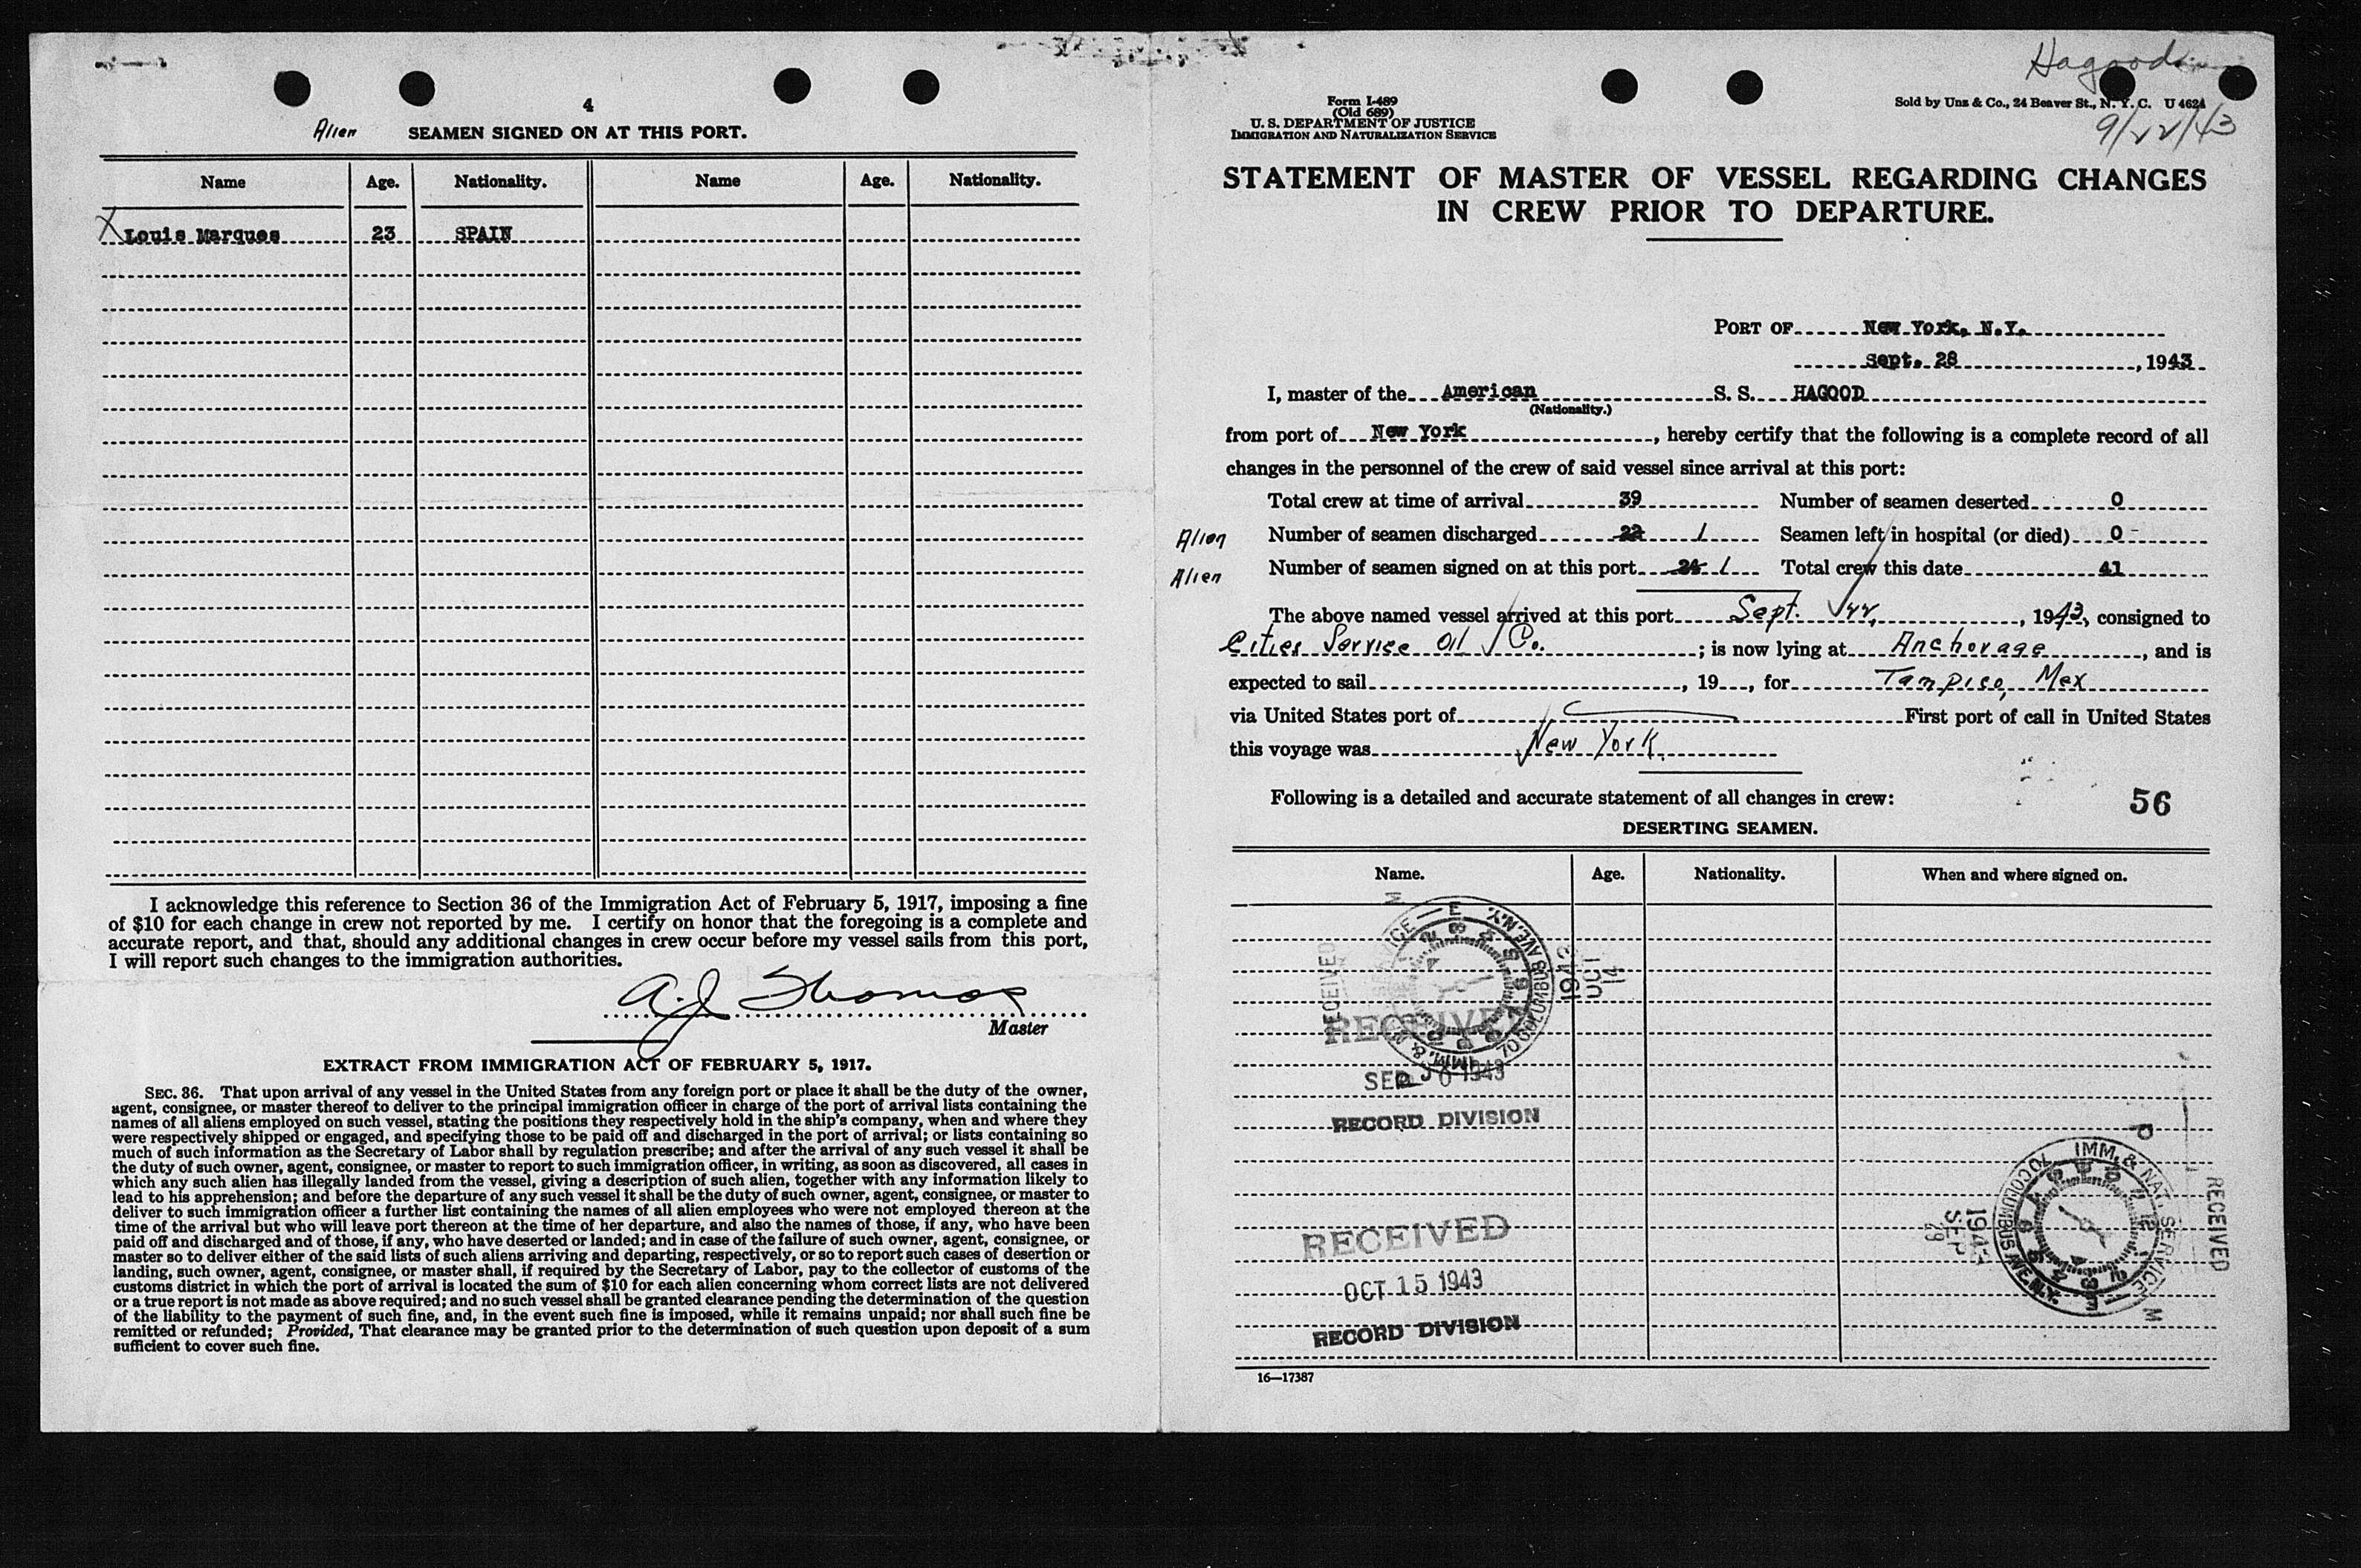 4
Alien SEAMEN SIGNED ON AT THIS PORT.
Name Age. Nationality. Name Age. Nationality.
X Louis Marques 23 SPAIN
I acknowledge this reference to Section 36 of the Immigration Act of February 5, 1917, imposing a fine
of $10 for each change in crew not reported by me. I certify on honor that the foregoing is a complete and
accurate report, and that, should any additional changes in crew occur before my vessel sails from this port,
I will report such changes to the immigration authorities.
A.J. Thomas
Master
EXTRACT FROM IMMIGRATION ACT OF FEBRUARY 5, 1917.
SEC. 36. That upon arrival of any vessel in the United States from any foreign port or place it shall be the duty of the owner,
agent, consignee, or master thereof to deliver to the principal immigration officer in charge of the port of arrival lists containing the
names of all aliens employed on such vessel, stating the positions they respectively hold in the ship's company, when and where they
were respectively shipped or engaged, and specifying those to be paid off and discharged in the port of arrival; or lists containing so
much of such information as the Secretary of Labor shall by regulation prescribe; and after the arrival of any such vessel it shall be
the duty of such owner, agent, consignee, or master to report to such immigration officer, in writing, as soon as discovered, all cases in
which any such alien has illegally landed from the vessel, giving a description of such alien, together with any information likely to
lead to his apprehension; and before the departure of any such vessel it shall be the duty of such owner, agent, consignee, or master to
deliver to such immigration officer a further list containing the names of all alien employees who were not employed thereon at the
time of the arrival but who will leave port thereon at the time of her departure, and also the names of those, if any, who have been
paid off and discharged and of those, if any, who have deserted or landed; and in case of the failure of such owner, agent, consignee, or
master so to deliver either of the said lists of such aliens arriving and departing, respectively, or so to report such cases of desertion or
landing, such owner, agent, consignee, or master shall, if required by the Secretary of Labor, pay to the collector of customs of the
customs district in which the port of arrival is located the sum of $10 for each alien concerning whom correct lists are not delivered
or a true report is not made as above required; and no such vessel shall be granted clearance pending the determination of the question
of the liability to the payment of such fine, and, in the event such fine is imposed, while it remains unpaid; nor shall such fine be
remitted or refunded; Provided, That clearance may be granted prior to the determination of such question upon deposit of a sum
sufficient to cover such fine.
Hagood
Form I-489
(Old 689)
U. S. DEPARTMENT OF JUSTICE
IMMIGRATION AND NATURALIZATION SERVICE
Sold by Unz & Co., 24 Beaver St., N. Y. C. U 4624
9/22/43
STATEMENT OF MASTER OF VESSEL REGARDING CHANGES
IN CREW PRIOR TO DEPARTURE.
PORT OF New York, N.Y.
Sept. 28, 1943
I, master of the American S. S. HAGOOD
(Nationality.)
from port of New York, hereby certify that the following is a complete record of all
changes in the personnel of the crew of said vessel since arrival at this port:
Total crew at time of arrival 39 Number of seamen deserted 0
Alien Number of seamen discharged 22 1 Seamen left in hospital (or died) 0
Alien Number of seamen signed on at this port 24 1 Total crew this date 41
The above named vessel arrived at this port Sept. 22, 1943, consigned to
Cities Service Oil Co. ; is now lying at Anchorage, and is
expected to sail , 19 , for Tampico, Mex
via United States port of First port of call in United States
this voyage was New York.
Following is a detailed and accurate statement of all changes in crew: 56
DESERTING SEAMEN.
Name. Age. Nationality. When and where signed on.
RECEIVED
IMM. & NAT. SERVICE
70 COLUMBUS AVE. N.Y.
1943
OCT
14
RECEIVED
SEP 30 1943
RECORD DIVISION
RECEIVED
IMM. & NAT. SERVICE
70 COLUMBUS AVE. N.Y.
1943
SEP
29
RECEIVED
OCT 15 1943
RECORD DIVISION
16—17387